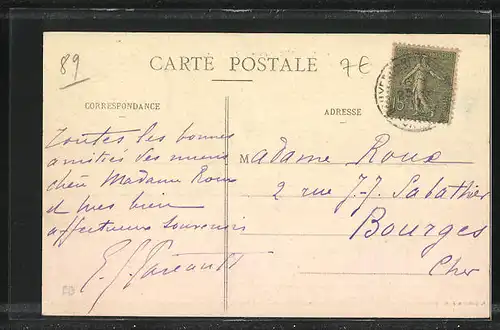 89
CARTE POSTALE
7E
CORRESPONDANCE
ADRESSE
Toutes les bonnes
amitiés des miens
chère Madame Roux
et mes bien
affectueux souvenirs
Madame Roux
2 rue J.J. Sabathier
Bourges
Cher